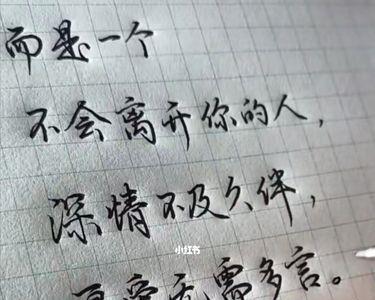 而是一个
不会离开你的人，
深情不及久伴，
小红书
无需多言。